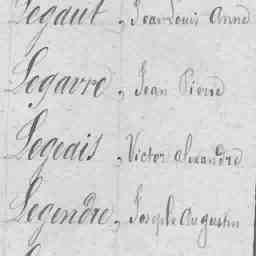 Legaut, Jean Louis Anne
Legavre, Jean Pierre
Legeais, Victor Alexandre
Legendre, Joseph Augustin